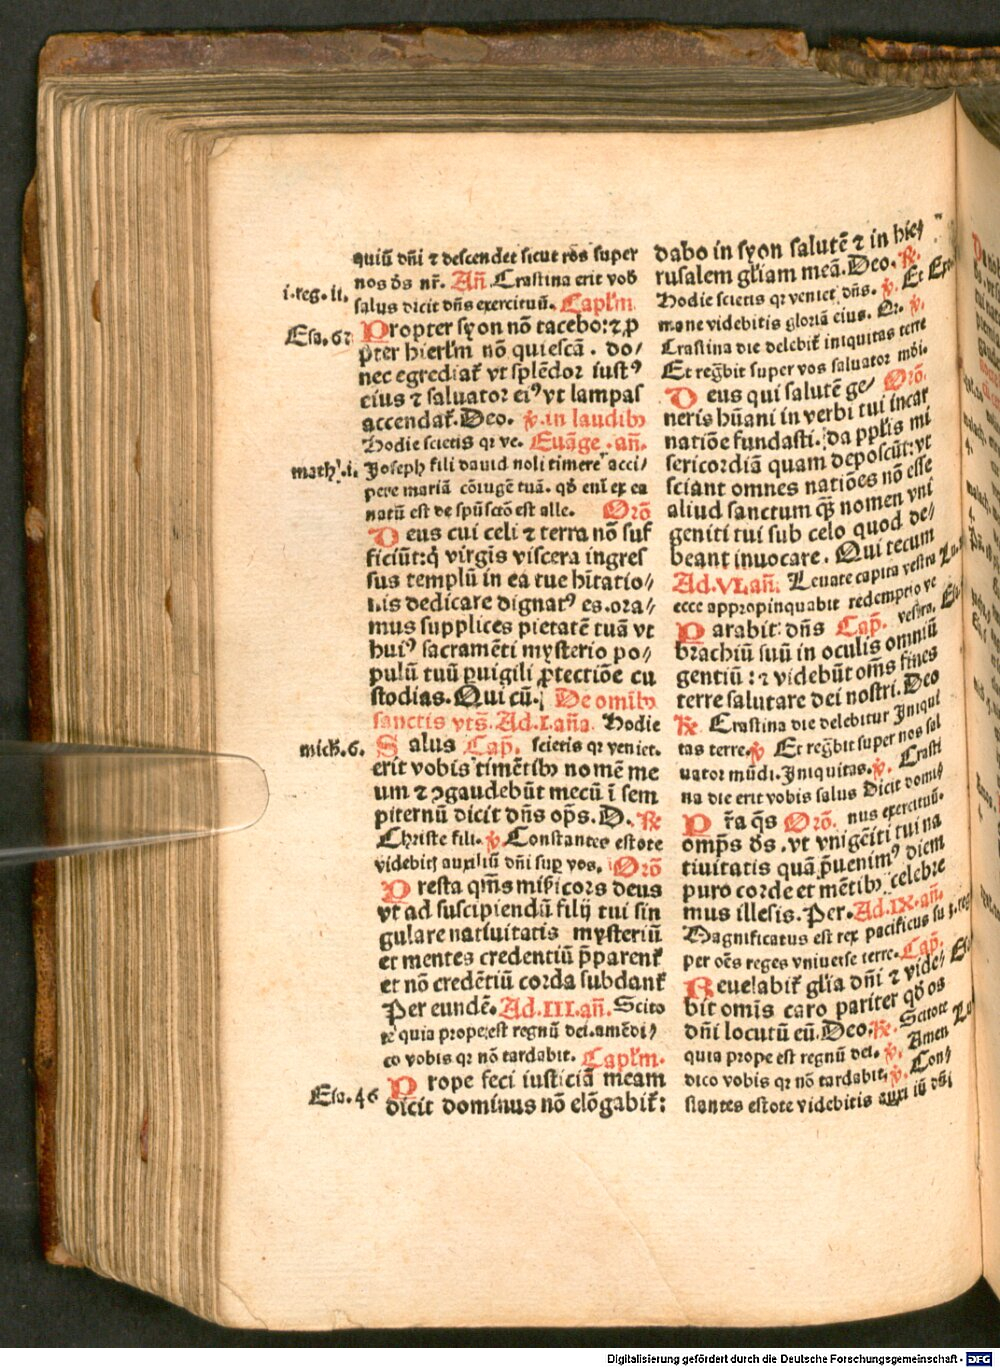 quiū dñi ⁊ descendet sicut ros super
nos ds nr̄. Añ Crastina erit vob
i.reg.ii. salus dicit dñs exercituū. Caplm
Esa.62 Propter syon nō tacebo: ⁊ ꝓ
pter hierłm nō quiescā. do/
nec egrediat̄ vt splēdor iustꝰ
eius ⁊ saluator eiꝰ vt lampas
accendat̄. Deo. ℣. in laudibꝫ
Hodie scietis qꝛ ve. Euāge. añ.
math'.i. Joseph fili dauid noli timere acci/
pere mariā cōiugē tuā. qd enī ex ea
natū est de spūsctō est alle. Orō
Deus cui celi ⁊ terra nō suf
ficiūt: q̄ virgīs viscera ingres
sus templū in ea tue hītatio/
nis dedicare dignatꝰ es. ora/
mus supplices pietatē tuā vt
huiꝰ sacramēti mysterio po/
pulū tuū ꝑuigili ꝓtectiōe cu
stodias. Qui cū. De omībꝫ
sanctis vts̄. Ad.I.aña. Hodie
mich.6. Salus Cap̄. scietis qꝛ veniet.
erit vobis timētibꝫ nomē me
um ⁊ ꝯgaudebūt mecū ī sem
piternū dicit dñs ops̄. D. ℟
Christe fili. ℣ Constantes estote
videbitꝭ auxiliū dñi suꝑ vos. Orō
Presta qm̄s misicors deus
vt ad suscipiendū filij tui sin
gulare natiuitatis mysteriū
et mentes credentiū p̄parent̄
et nō credētiū corda subdant̄
Per eundē. Ad.III.añ. Scito
te quia prope est regnū dei. amē di/
co vobis qꝛ nō tardabit. Caplm.
Esa.46 Prope feci iusticiā meam
dicit dominus nō elōgabit̄:
dabo in syon salutē ⁊ in hie/
rusalem gliam meā. Deo. ℟.
Hodie scietis qꝛ veniet dñs. ℣. Et
mane videbitis gloriā eius. Or. ℣.
Crastina die delebit̄ iniquitas terre
Et regbit super vos saluator mōi.
Deus qui salutē ge/ Orō.
neris hūani in verbi tui incar
natiōe fundasti: da ppłis mi
sericordiā quam deposcūt: vt
sciant omnes natiōes nō esse
aliud sanctum qꝫ nomen vni
geniti tui sub celo quod de/
beant inuocare. Qui tecum
Ad.VI.añ. Leuate capita vestra
ecce appropinquabit redemptio ve
Parabit dñs Cap̄. vestra.
brachiū suū in oculis omniū
gentiū: ⁊ videbūt om̄s fines
terre salutare dei nostri. Deo
℟ Crastina die delebitur Iniqui
tas terre. ℣ Et regbit super nos sal
uator mūdi. Iniquitas. ℣. Crasti
na die erit vobis salus Dicit domi
Pr̄a qs Orō. nus exercituū.
omps ds. vt vnigēiti tui na
tiuitatis quā p̄uenimꝰ diem
puro corde et mētibꝫ celebre
mus illesis. Per. Ad.IX.añ.
Magnificatus est rex pacificus su
per oēs reges vniuerse terre. Cap̄.
Reuelabit̄ glia dñi ⁊ vide/
bit omīs caro pariter qd os
dñi locutū eū. Deo. ℟. Scitote
quia prope est regnū dei. ℣. Amen
dico vobis qꝛ nō tardabit. ℣. Con/
stantes estote videbitis auxiliū dñi
Digitalisierung gefördert durch die Deutsche Forschungsgemeinschaft - DFG